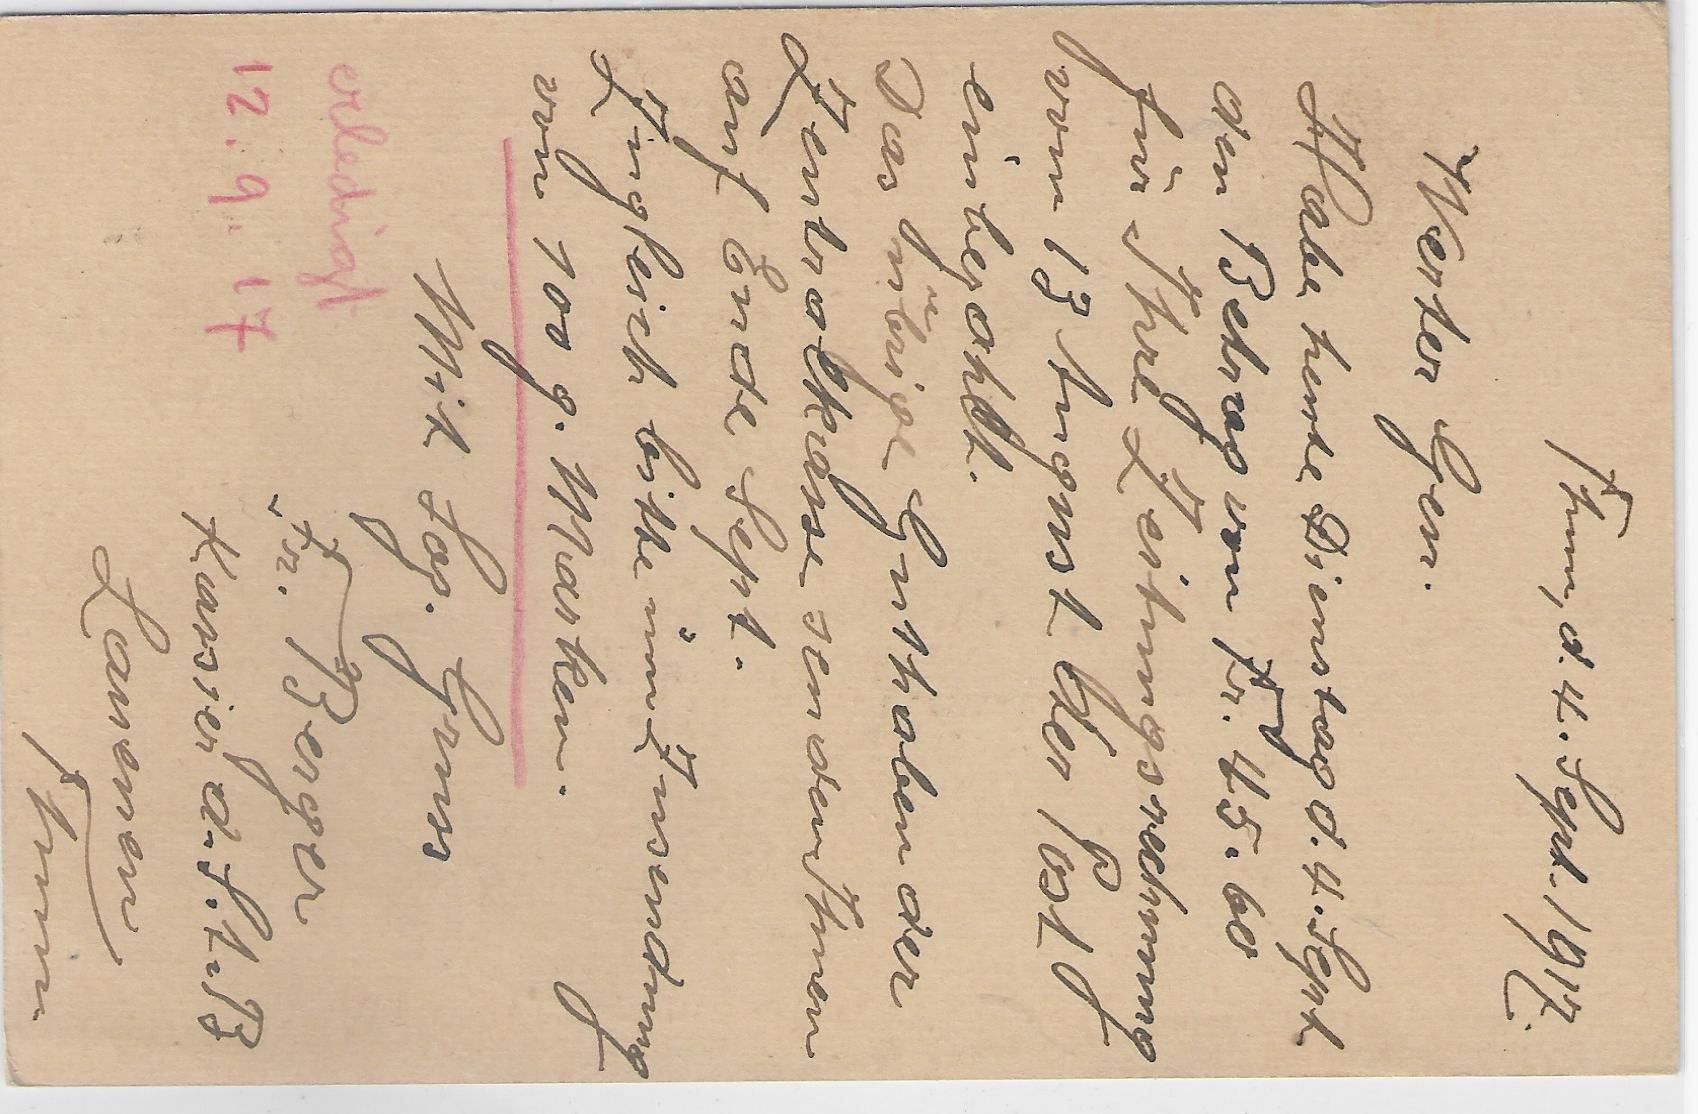 Thun, d. 4. Sept. 1917.
Werter Gen.
Habe heute Dienstag d. 4. Sept
den Betrag von Fr. 45.60
für Ihre Zeitungsrechnung
vom 13 August per Post
einbezahlt.
Das übrige Guthaben der
Zentralkasse senden Ihnen
auf Ende Sept.
Zugleich bitte um Zusendung
von 100 g. Marken.
Mit Soz. Gruss
Fr. Berger
Kassier d. S.A.B
Lauenen
Thun
erledigt
12. 9. 17